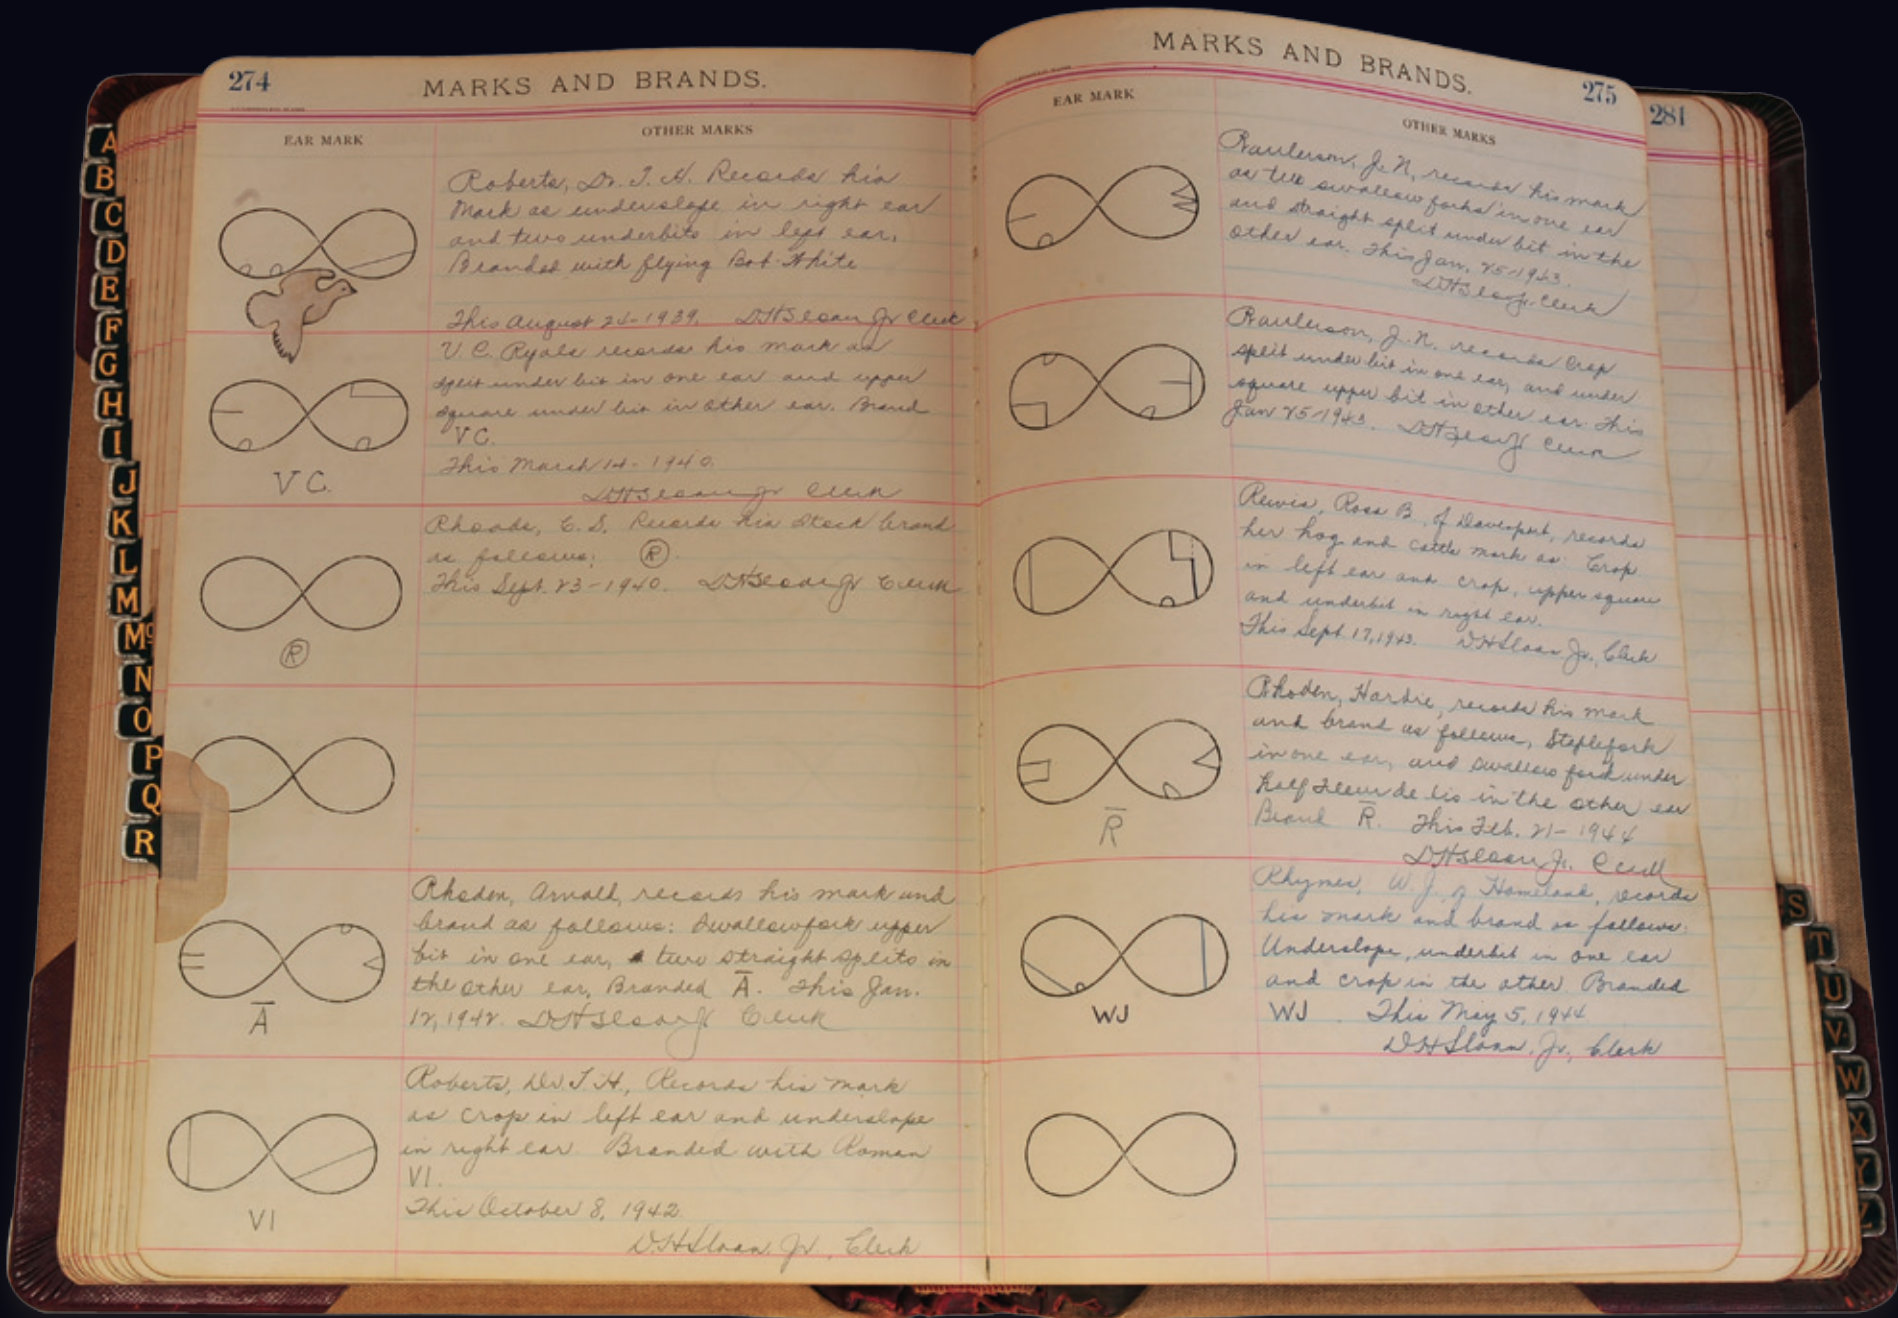 274
MARKS AND BRANDS.
EAR MARK
OTHER MARKS
Roberts, Dr. T. H. Records his
Mark as underslope in right ear
and two underbits in left ear.
Branded with flying Bob-White
This August 24-1939. D H Sloan Jr Clerk
V. C. Ryals records his mark as
split under bit in one ear and upper
square under bit in other ear. Brand
VC.
This March 14-1940.
D H Sloan Jr Clerk
VC.
Rhoads, C. S. Records his stock brand
as follows: R.
This Sept. 23-1940. D H Sloan Jr Clerk
R
Rhoden, Arnold, records his mark and
brand as follows: Swallowfork upper
bit in one ear, two straight splits in
the other ear, Branded A. This Jan.
12, 1942. D H Sloan Jr Clerk
A
Roberts, Dr. T. H., Records his mark
as crop in left ear and underslope
in right ear. Branded with Roman
VI.
This October 8, 1942.
D. H. Sloan, Jr., Clerk
VI
MARKS AND BRANDS.
275
EAR MARK
OTHER MARKS
Raulerson, J. N, records his mark
as two swallow forks in one ear
and straight split under bit in the
other ear. This Jan. 25-1943.
D H Sloan Jr. Clerk
Raulerson, J. N. records Crop
split under bit in one ear, and under
square upper bit in other ear. This
Jan 25-1943. D H Sloan Jr Clerk
Rewis, Rosa B, of Davenport, records
her hog and cattle mark as: Crop
in left ear and crop, upper square
and underbit in right ear.
This Sept. 17, 1943. D H Sloan Jr., Clerk
Rhoden, Hardie, records his mark
and brand as follows, Staplefork
in one ear, and swallow fork under
half Fleur de lis in the other ear
Brand R. This Feb. 21-1944
D H Sloan Jr. Clerk
R
Rhymes, W. J. of Homeland, records
his mark and brand as follows:
Underslope, underbit in one ear
and crop in the other. Branded
WJ. This May 5, 1944
D H Sloan, Jr., Clerk
WJ
281
A
B
C
D
E
F
G
H
I
J
K
L
M
Mc
N
O
P
Q
R
S
T
U
V
W
X
Y
Z